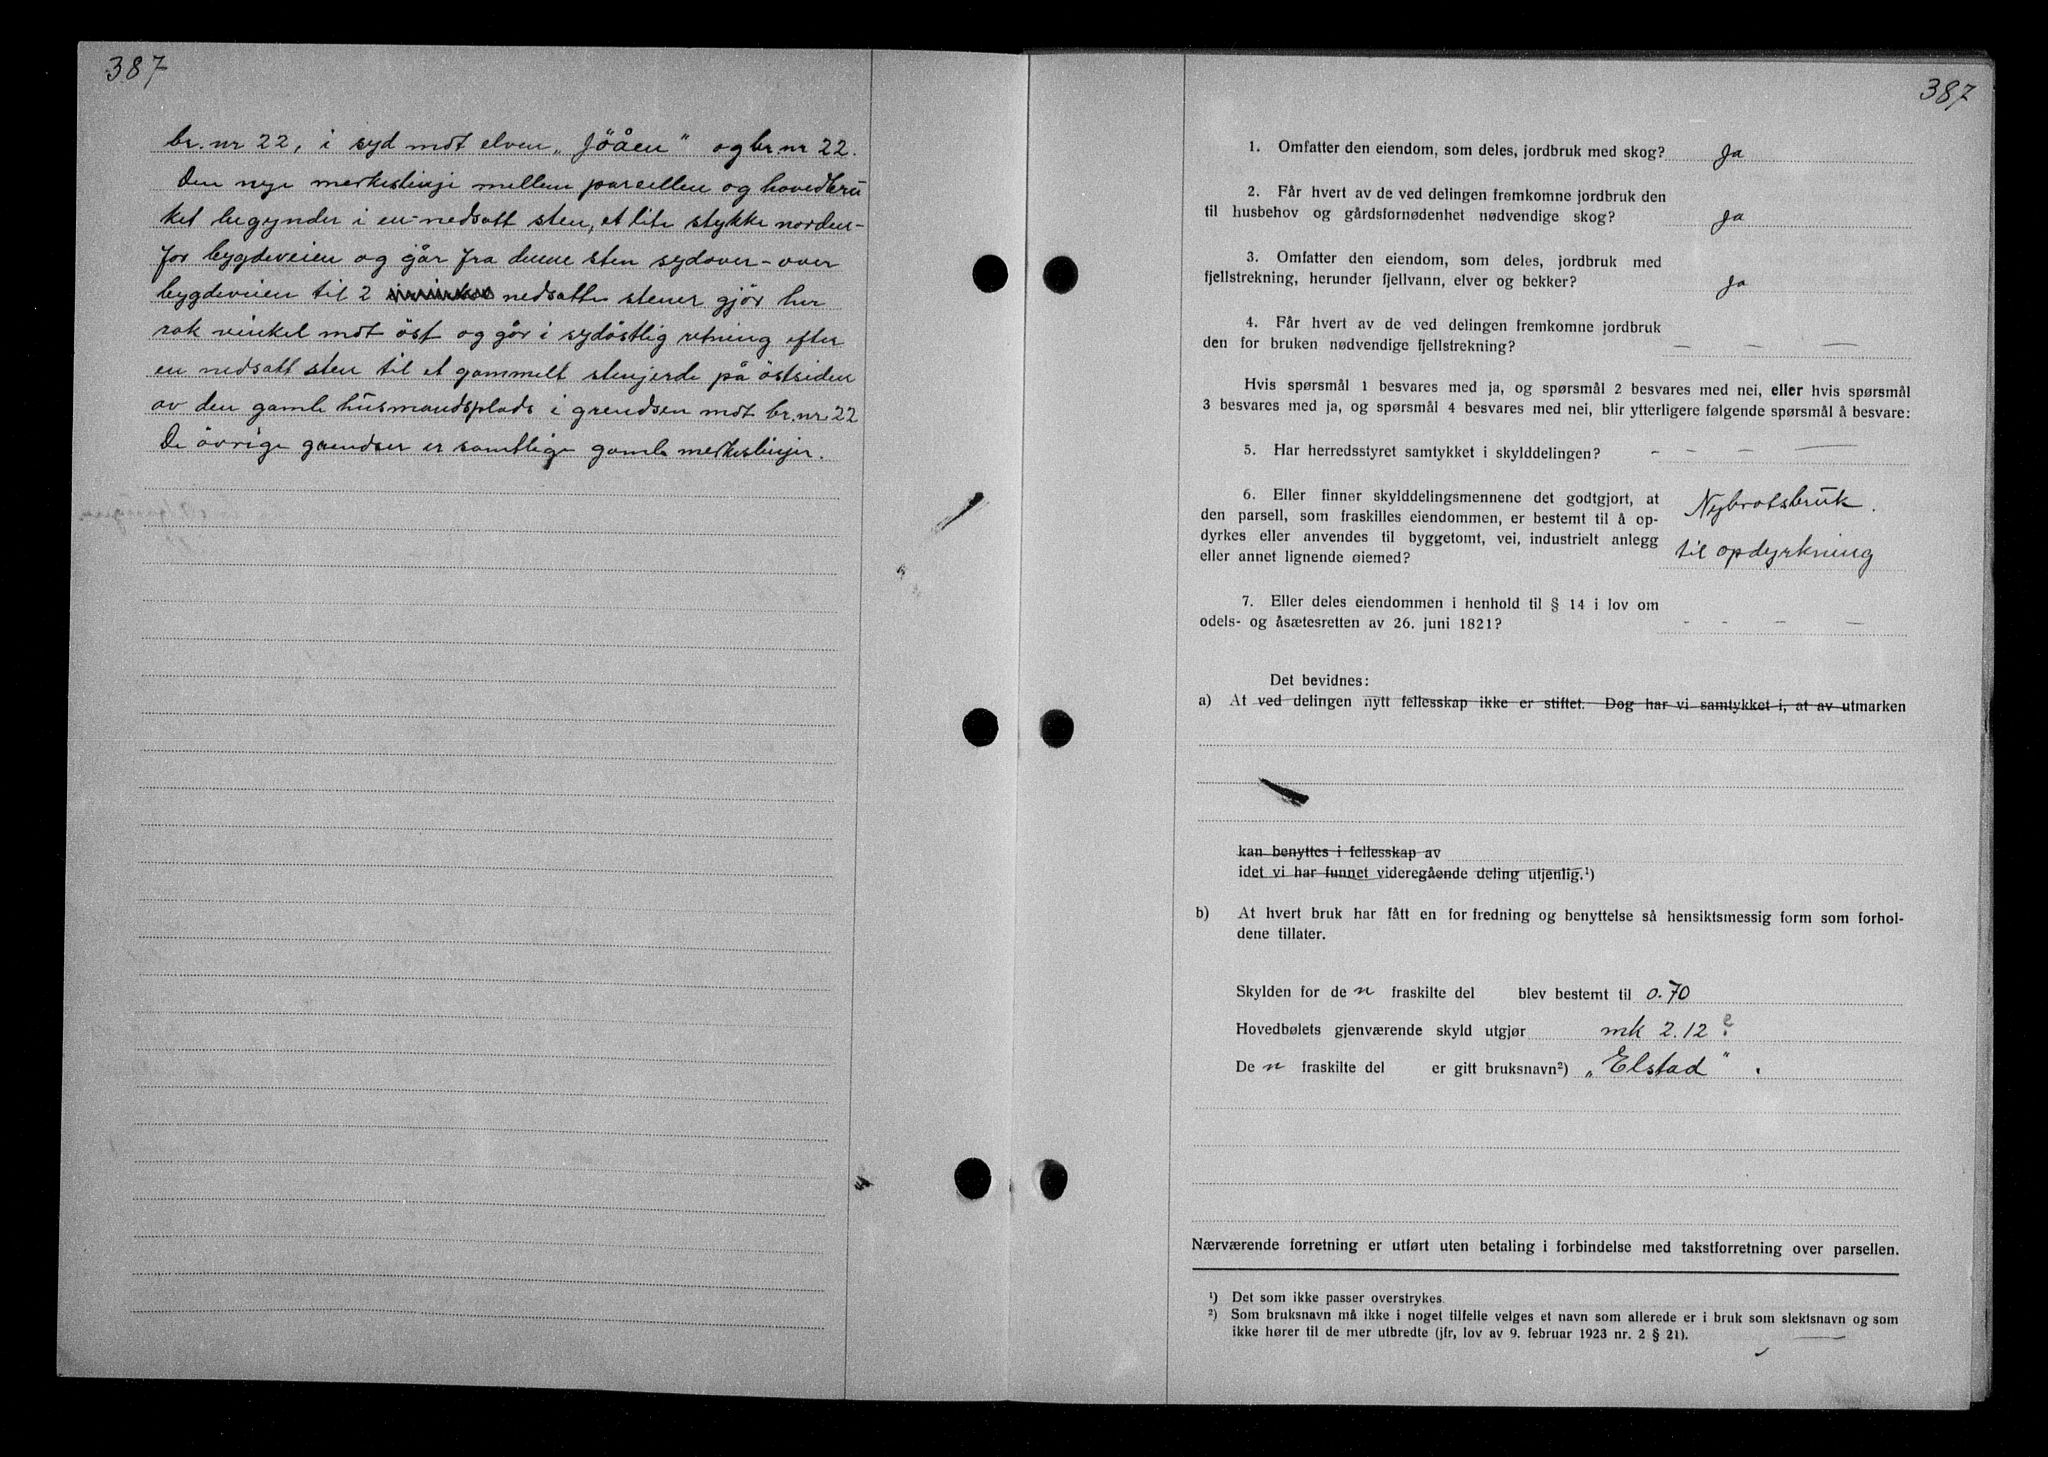 387
br. nr 22, i syd mót elven „Jöåen" og br. nr 22.
Den nye merkeslinje mellem parsellen og hovedbru
ket begynder i en nedsatt sten, et lite stykke norden-
for bygdeveien og går fra denne sten sydover - over
bygdeveien til 2 nedsatte stener gjör her
ret vinkel mót öst og går i sydöstlig retning efter
en nedsatt sten til et gammelt stengjerde på östsiden
av den gamle husmandsplads i grendsen mót br. nr 22
De övrige grendser er samtlige gamle merkeslinjer.
387
1. Omfatter den eiendom, som deles, jordbruk med skog? Ja
2. Får hvert av de ved delingen fremkomne jordbruk den
til husbehov og gårdsfornødenhet nødvendige skog? Ja
3. Omfatter den eiendom, som deles, jordbruk med
fjellstrekning, herunder fjellvann, elver og bekker? Ja
4. Får hvert av de ved delingen fremkomne jordbruk
den for bruken nødvendige fjellstrekning? — — —
Hvis spørsmål 1 besvares med ja, og spørsmål 2 besvares med nei, eller hvis spørsmål
3 besvares med ja, og spørsmål 4 besvares med nei, blir ytterligere følgende spørsmål å besvare:
5. Har herredsstyret samtykket i skylddelingen? - - - —
6. Eller finner skylddelingsmennene det godtgjort, at
den parsell, som fraskilles eiendommen, er bestemt til å op-
dyrkes eller anvendes til byggetomt, vei, industrielt anlegg
eller annet lignende øiemed?
Nybrotsbruk.
til opdyrkning
7. Eller deles eiendommen i henhold til § 14 i lov om
odels- og åsætesretten av 26. juni 1821? - - - -
Det bevidnes:
a) At ved delingen nytt fellesskap ikke er stiftet. Dog har vi samtykket i, at av utmarken
kan benyttes i fellesskap av
idet vi har funnet videregående deling utjenlig.¹)
b) At hvert bruk har fått en for fredning og benyttelse så hensiktsmessig form som forhol-
dene tillater.
Skylden for de n fraskilte del blev bestemt til 0.70
Hovedbølets gjenværende skyld utgjør mk 2.12
De n fraskilte del er gitt bruksnavn²) „Elstad".
Nærværende forretning er utført uten betaling i forbindelse med takstforretning over parsellen.
¹) Det som ikke passer overstrykes.
²) Som bruksnavn må ikke i noget tilfelle velges et navn som allerede er i bruk som slektsnavn og som
ikke hører til de mer utbredte (jfr. lov av 9. februar 1923 nr. 2 § 21).